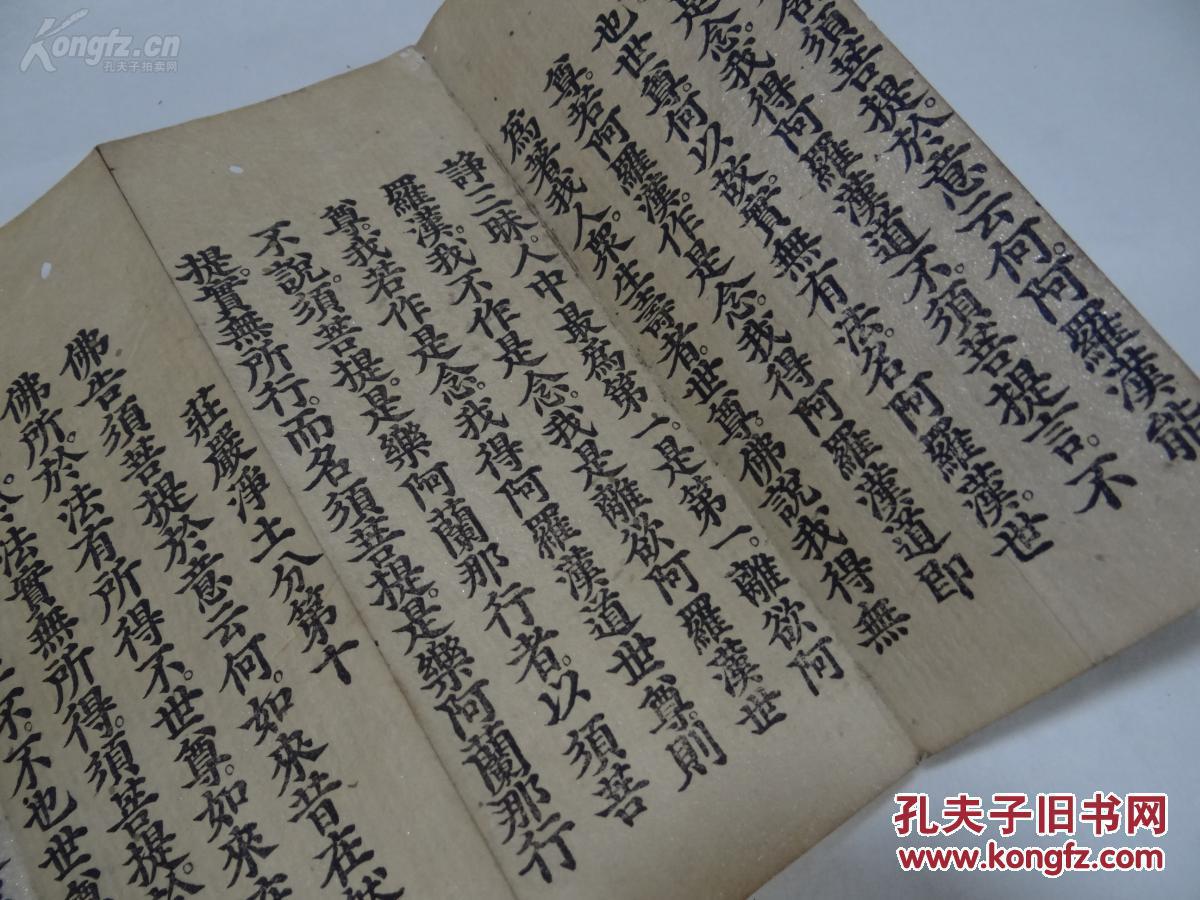 含須菩提。於意云何。阿羅漢能
是念。我得阿羅漢道不。須菩提言。不
也。世尊。何以故。實無有法。名阿羅漢。世
尊。若阿羅漢。作是念。我得阿羅漢道即
爲著我人衆生壽者。世尊。佛說我得無
諍三昧。人中最爲第一。是第一。離欲阿
羅漢。我不作是念。我是離欲阿羅漢世
尊。我若作是念。我得阿羅漢道世尊。則
不說。須菩提。是樂阿蘭那行者。以須菩
提。實無所行。而名須菩提。是樂阿蘭那行
莊嚴淨土分第十
佛告須菩提於意云何。如來昔在然
佛所。於法有所得不。世尊。如來在
於法實無所得。須菩提。於
不。不也世尊
Kongfz.cn
孔夫子拍卖网
孔夫子旧书网
www.kongfz.com